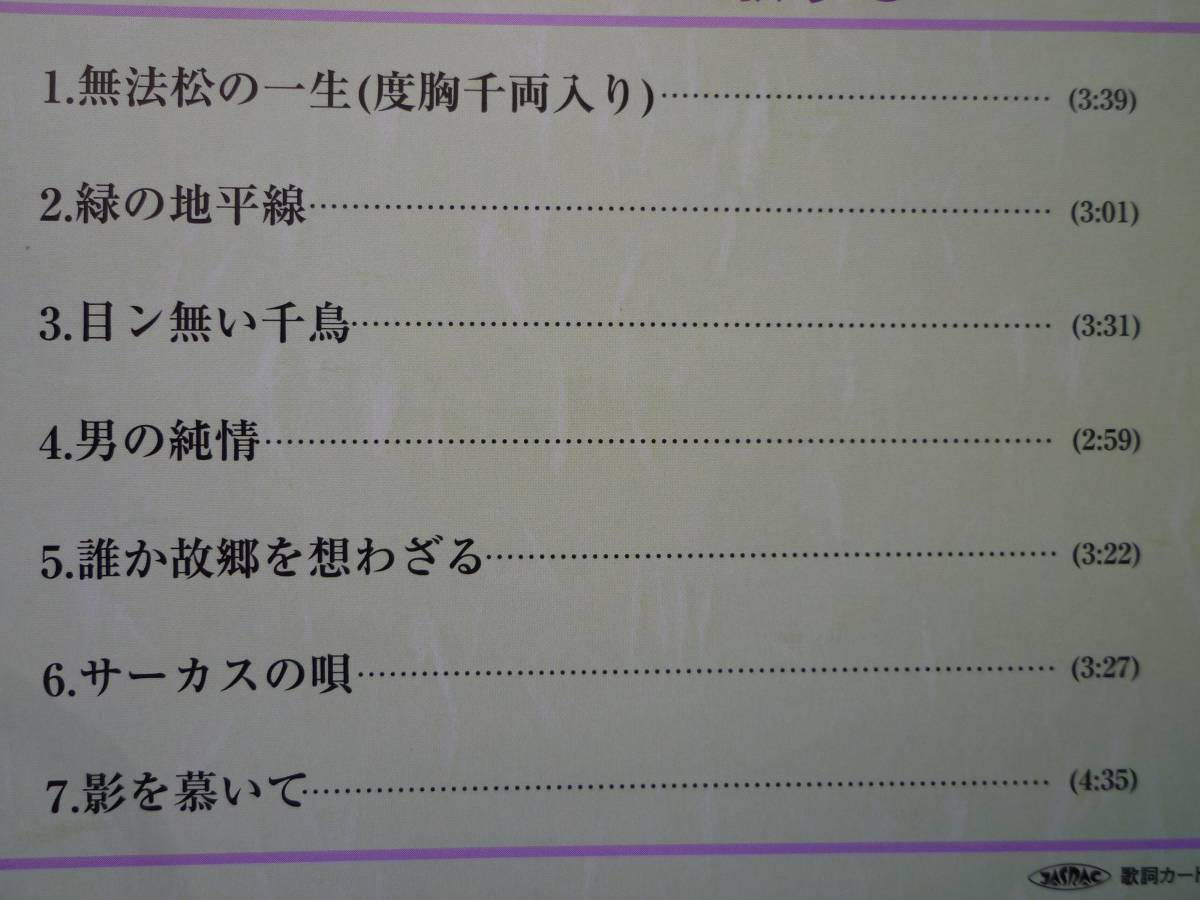 1.無法松の一生(度胸千両入り)……………(3:39)
2.緑の地平線……………(3:01)
3.目ン無い千鳥……………(3:31)
4.男の純情……………(2:59)
5.誰か故郷を想わざる……………(3:22)
6.サーカスの唄……………(3:27)
7.影を慕いて……………(4:35)
JASRAC 歌詞カード